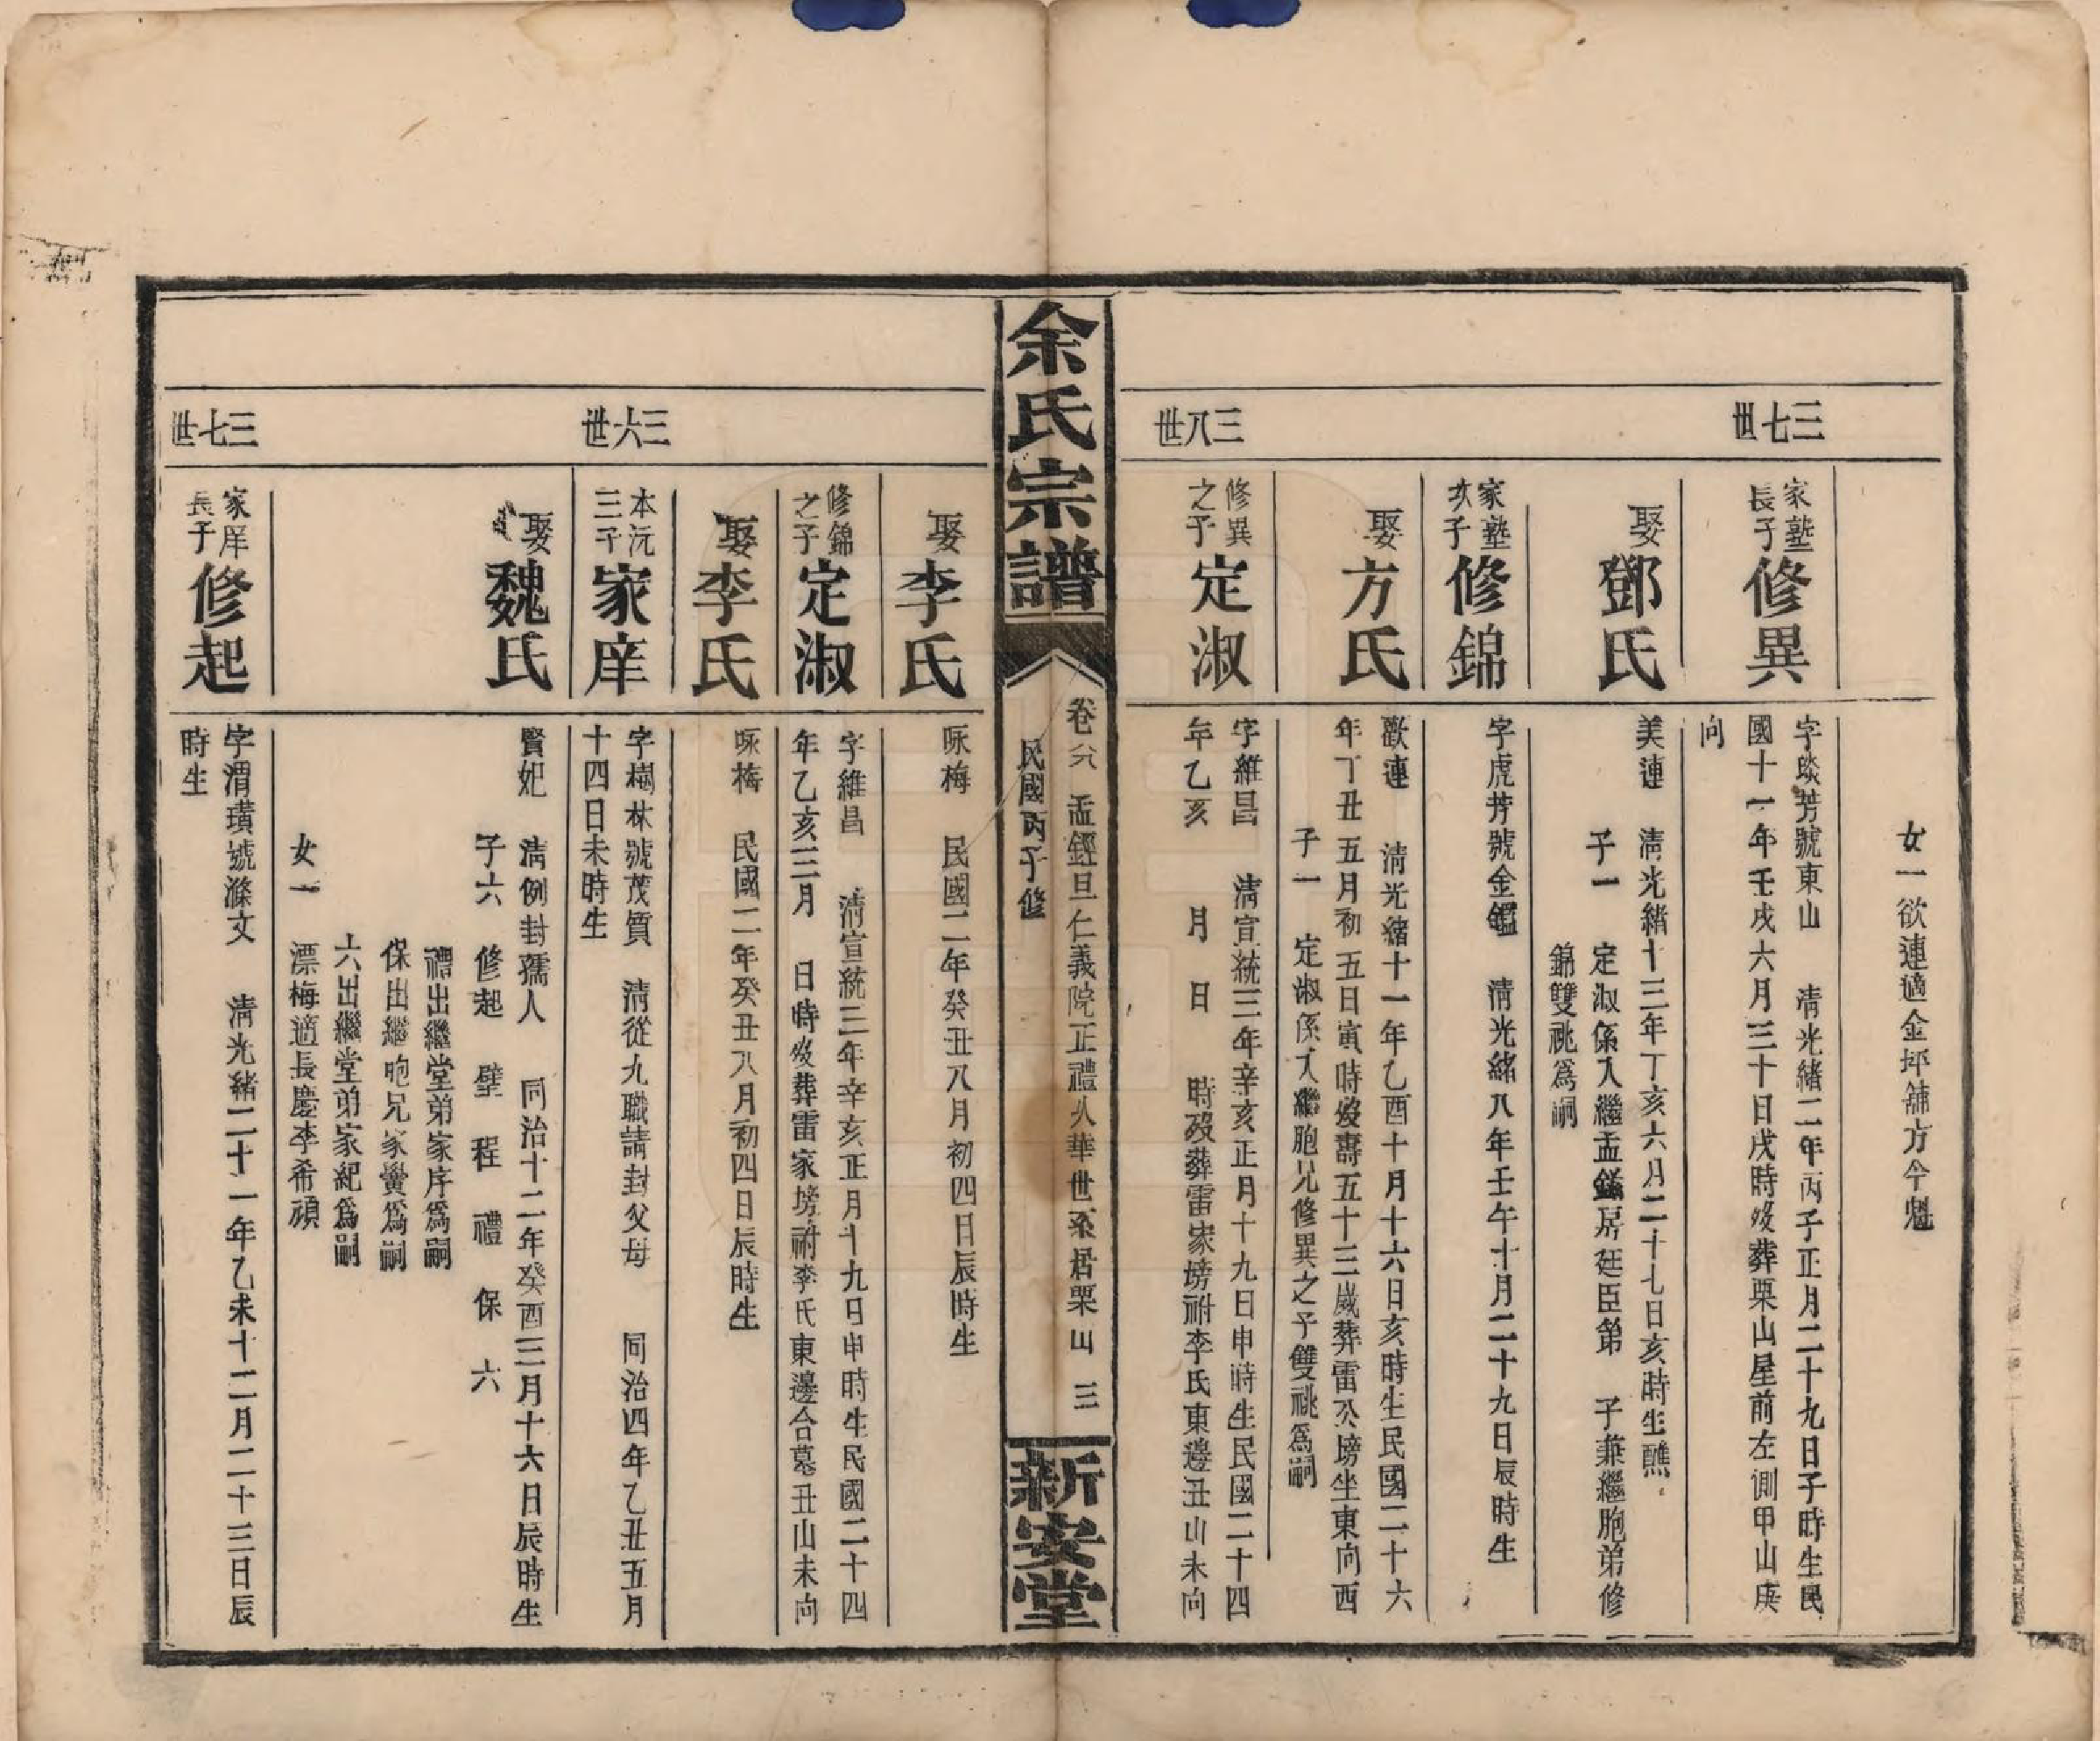 女一欲連適金坪舖方今魁
三七世
家塾長子修異
字燊芳號東山　清光緒二年丙子正月二十九日子時生民
國十一年壬戌六月三十日戌時歿葬栗山屋前左側甲山庚
向
娶鄧氏
美連　清光緒十三年丁亥六月二十七日亥時生醮
子一　定淑係入繼孟鑑房廷臣第　子兼繼胞弟修
錦雙祧爲嗣
家塾次子修錦
字虎芳號金鑑　清光緒八年壬午十月二十九日辰時生
娶方氏
歡連　清光緒十一年乙酉十月十六日亥時生民國二十六
年丁丑五月初五日寅時歿壽五十三歲葬雷公塝坐東向西
子一　定淑係入繼胞兄修異之子雙祧爲嗣
三八世
修異之子定淑
字維昌　清宣統三年辛亥正月十九日申時生民國二十四
年乙亥　月　日　時歿葬雷家塝祔李氏東邊丑山未向
余氏宗譜
卷六　孟鏗旦仁義院正禮公華世系居栗山　三
民國丙子修
新安堂
娶李氏
咏梅　民國二年癸丑八月初四日辰時生
修錦之子定淑
字維昌　清宣統三年辛亥正月十九日申時生民國二十四
年乙亥三月　日時歿葬雷家塝祔李氏東邊合墓丑山未向
娶李氏
咏梅　民國二年癸丑八月初四日辰時生
三六世
本沅三子家庠
字樹林號茂質　清從九職請封父母　同治四年乙丑五月
十四日未時生
娶魏氏
賢妃　清例封孺人　同治十二年癸酉三月十六日辰時生
子六　修起　壁　程　禮　保　六
禮出繼堂弟家序爲嗣
保出繼胞兄家黌爲嗣
六出繼堂弟家紀爲嗣
女一　漂梅適長慶李希頑
三七世
家庠長子修起
字渭璜號滌文　清光緒二十一年乙未十二月二十三日辰
時生